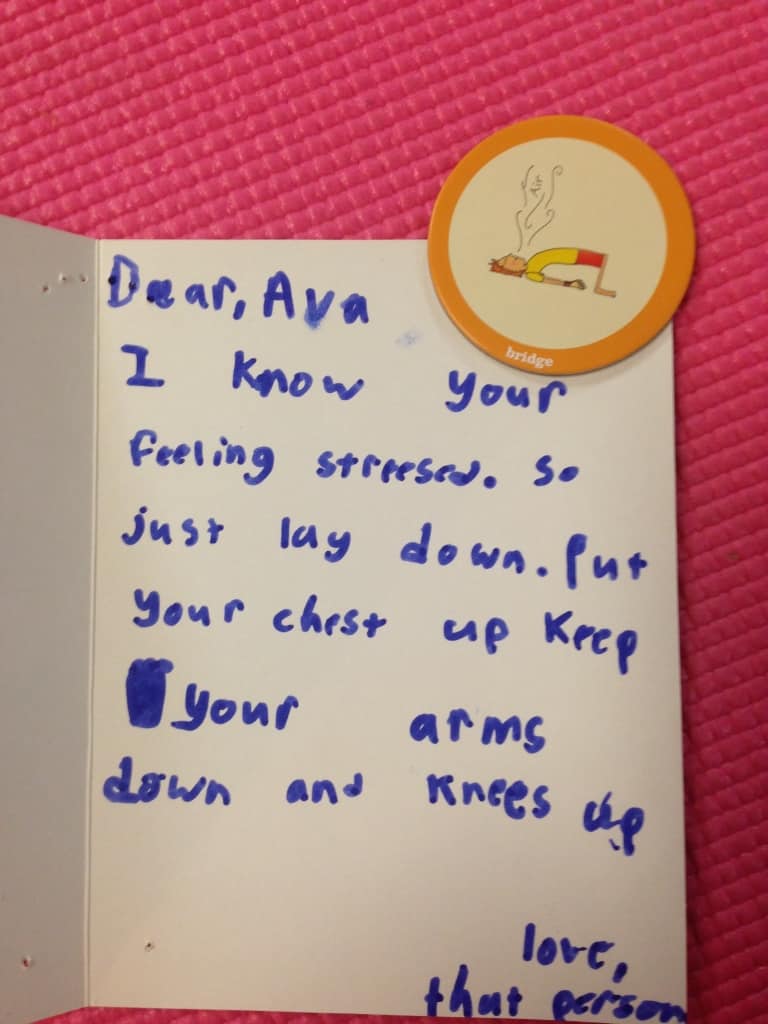 Air
bridge
Dear, Ava
I know your
feeling streesed. So
just lay down. Put
your chest up keep
your arms
down and knees up
love,
that person